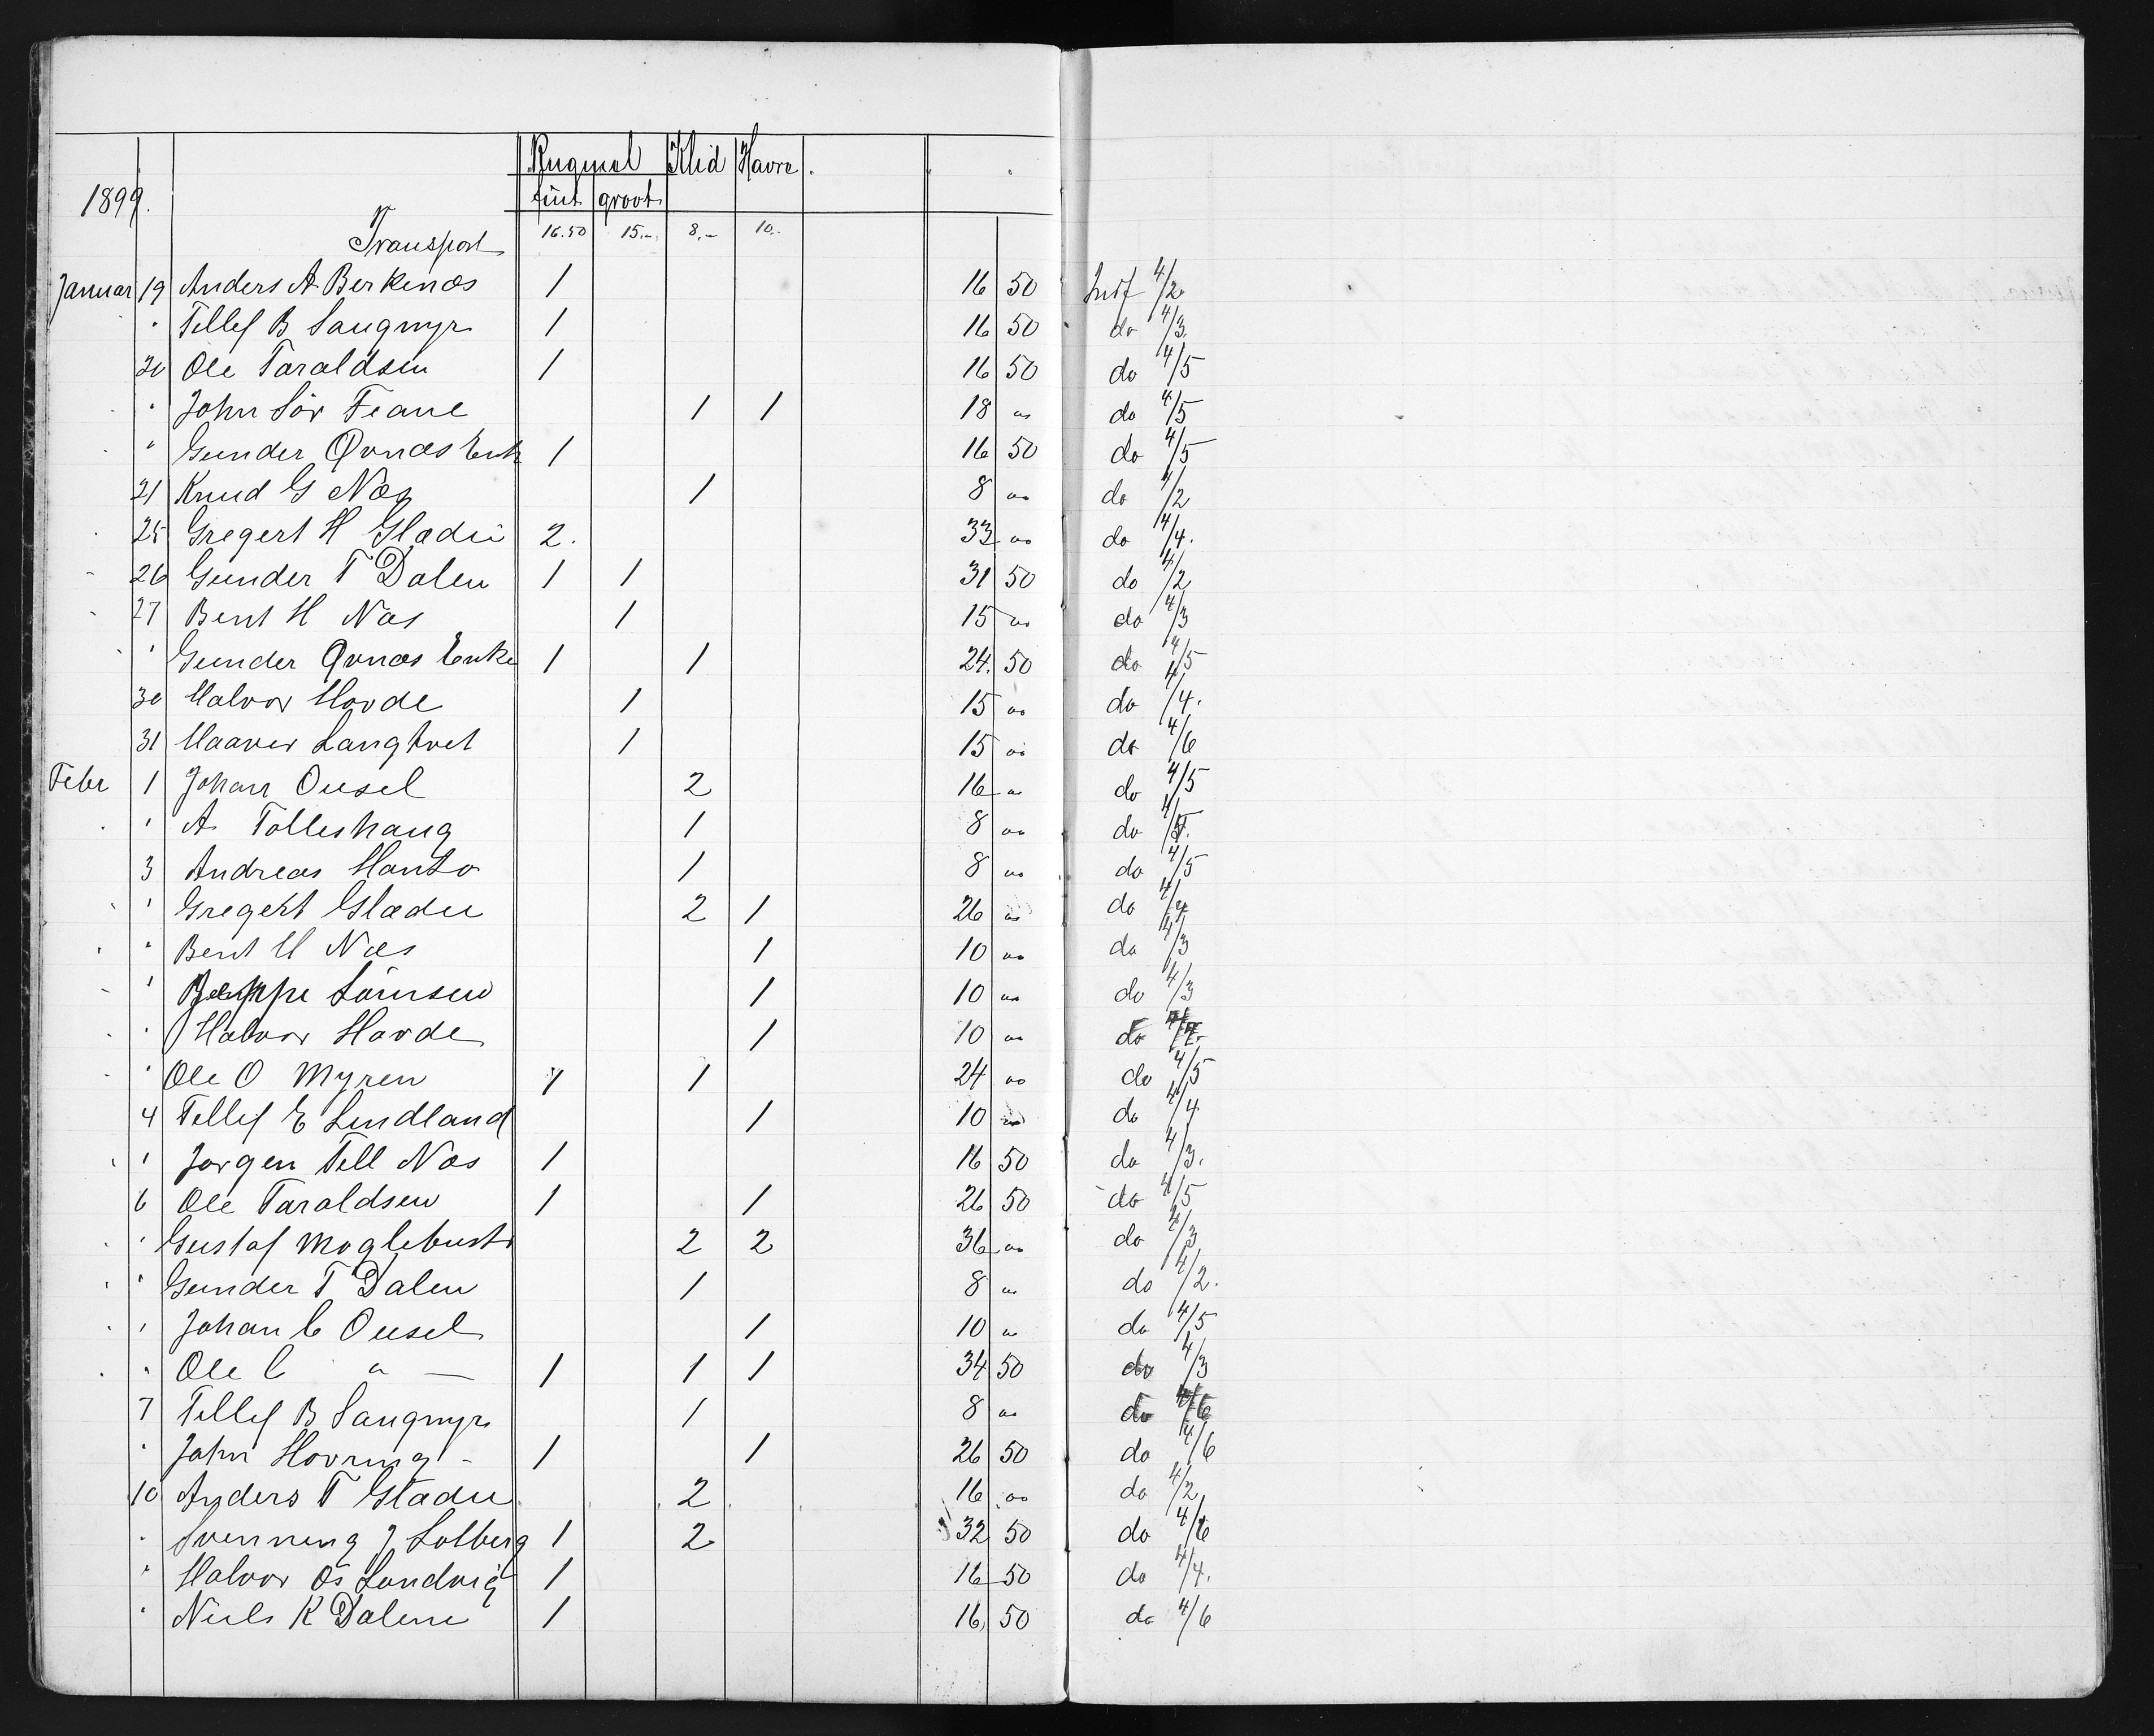 Rugmel Klid Havre
1899. fint groot
Transport 16.50 15.- 8.- 10.
Januar 19 Anders A Berkenæs 1 16 50 Indf 4/2
" Tellef B Saugmyr 1 16 50 do 4/3
20 Ole Taraldsen 1 16 50 do 4/5
" John Sör Feane 1 1 18 " do 4/5
" Gunder Qvnæs Enk 1 16 50 do 4/5
21 Knud G Næs 1 8 " do 4/2
25 Gregert H Glædu 2. 33 " do 4/4.
26 Gunder T Dalen 1 1 31 50 do 4/2
27 Bent H Næs 1 15 " do 4/3
" Gunder Qvnæs Enke 1 1 24. 50 do 4/5
30 Halvor Hovde 1 15 " do 4/4.
31 Haaver Langtvet 1 15 " do 4/6
Febr 1 Johan Ousel 2 16 " do 4/5
" A Tolleshaug 1 8 " do
3 Andreas Hanto 1 8 " do 4/5
" Gregert Glædu 2 1 26 " do 4/4
" Bent H Næs 1 10 " do 4/3
" Jeppe Sörnsen 1 10 " do 4/3
" Halvor Hovde 1 10 " do 4/4.
" Ole O Myren 1 1 24 " do 4/5
4 Tellef E Lindland 1 10 " do 4/4
" Jorgen Tell Næs 1 16 50 do 4/3.
6 Ole Taraldsen 1 1 26 50 do 4/5
" Gustaf Moglebust 2 2 36 " do 4/3
" Gunder T Dalen 1 8 " do 4/2.
" Johan C Ousel 1 10 " do 4/5
" Ole C " — 1 1 1 34 50 do 4/3
7 Tellef B Saugmyr 1 8 " do 4/6
" John Hovring - 1 1 26 50 do 4/6
10 Anders T Glædu 2 16 " do 4/2
" Svenning J Solberg 1 2 32 50 do 4/6
" Halvor Ös Landvig 1 16 50 do 4/4.
" Niels K Dalene 1 16 50 do 4/6